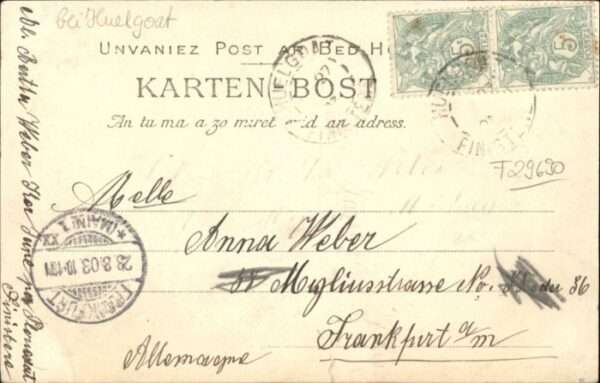 bei Huelgoat
UNVANIEZ POST AR BED-HO
KARTEN BOST
An tu ma a zo miret evid an adress.
5
5
HUELGOAT
FINIST
F29630
Melle
Anna Weber
Myliusstrasse No. 36
Frankfurt a/m
Allemagne
FRANKFURT
28.8.03.10-11V
*(MAIN) 1
Weber
Finistère